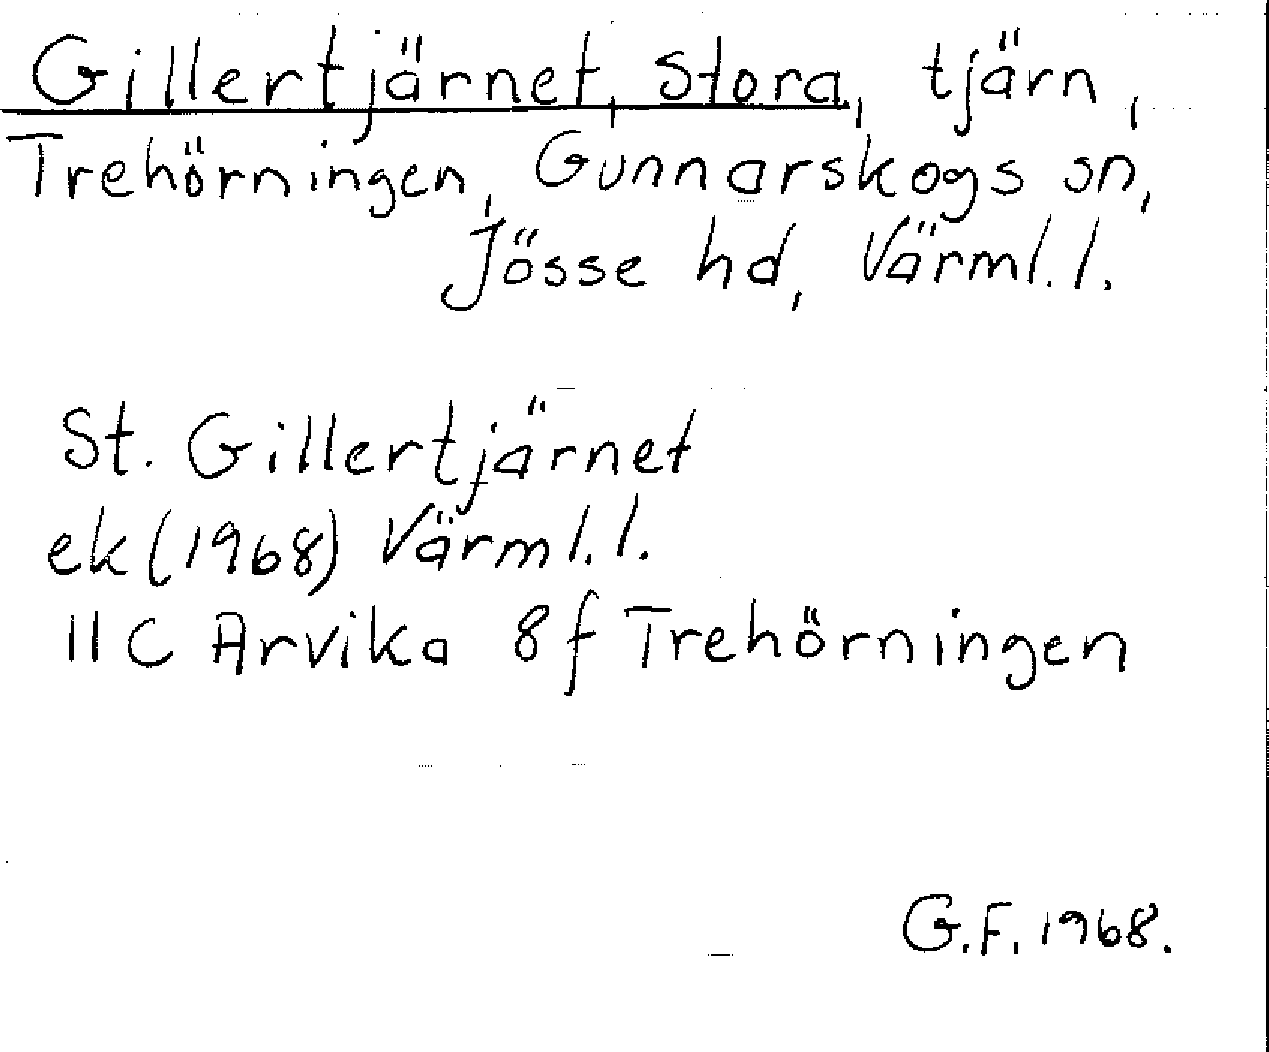 Gillertjärnet, Stora, tjärn,
Trehörningen, Gunnarskogs sn,
Jösse hd, Värml. l.
St. Gillertjärnet
ek (1968) Värml. l.
11C Arvika 8f Trehörningen
G.F. 1968.